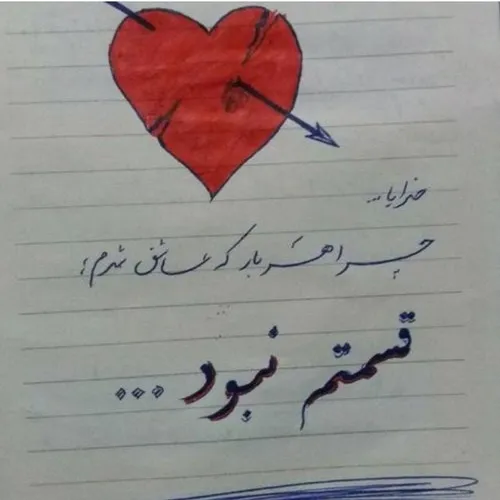 خدایا...
چرا هر بار که عاشق شدم؛
قسمتم نبود ...